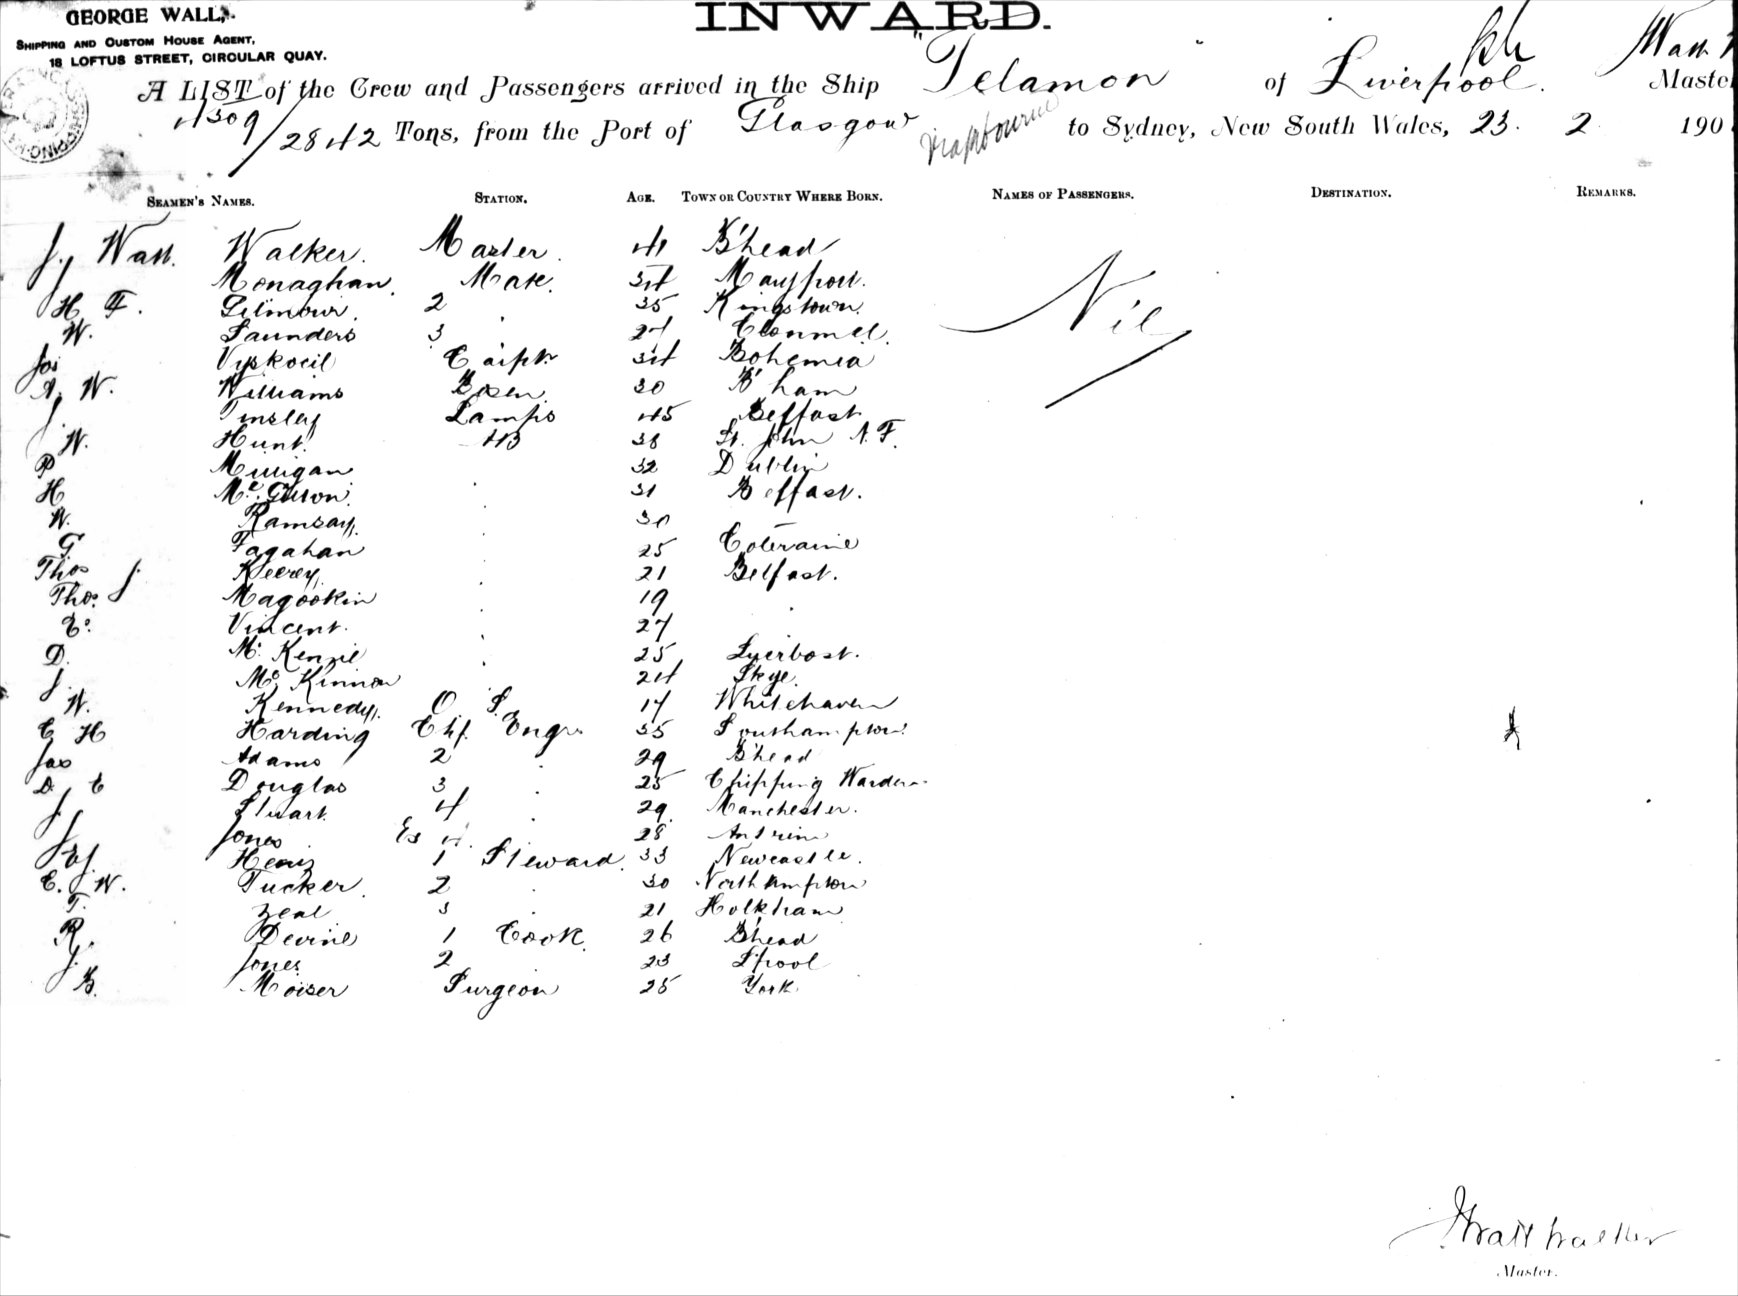 GEORGE WALL,
SHIPPING AND CUSTOM HOUSE AGENT,
18 LOFTUS STREET, CIRCULAR QUAY.
INWARD.
A LIST of the Crew and Passengers arrived in the Ship Telamon of Liverpool. Watt Master
4509/2842 Tons, from the Port of Glasgow to Sydney, New South Wales, 23. 2 190
SEAMEN'S NAMES. STATION. AGE. TOWN OR COUNTRY WHERE BORN. NAMES OF PASSENGERS. DESTINATION. REMARKS.
J. Watt Walker. Master. 41 B'head
Monaghan. Mate. 34 Mayport.
Nil
H F. Gilmour. 2 35 Kingstown.
W. Saunders 3 27 Clonmel.
Jos Vyskocil Carptr 34 Bohemia
A. W. Williams Bosen 30 B'ham
J. Tinsley Lamps 45 Belfast
W. Hunt. AB 38 St. John N.F.
P Mulligan 32 Dublin
H 31 Belfast.
W. Ramsay. 30
G. Fagahan 25 Coleraine
Thos J. Keery. 21 Belfast.
Thos. Magookin 19
Vincent. 27
D. Mc Kenzie 25 Luerbost.
J. Mc Kinnon 24 Skye.
W. Kennedy. O S. 17 Whitehaven
C H Harding Chf. Engr 35 Southampton.
Jas Adams 2 29 B'head
D. C Douglas 3 25 Chipping Warden
J. Stuart. 4 29. Manchester.
J. Jones Ex 4. 28 Antrim
Henry 1 Steward. 33 Newcastle.
C. W. Tucker. 2 30 Northampton
T. Zeal 3 21 Holkham
R. Devine 1 Cook. 26 B'head
J. Jones 2 23 L'pool
B. Moiser Surgeon 25 York.
J Watt Walker
Master.